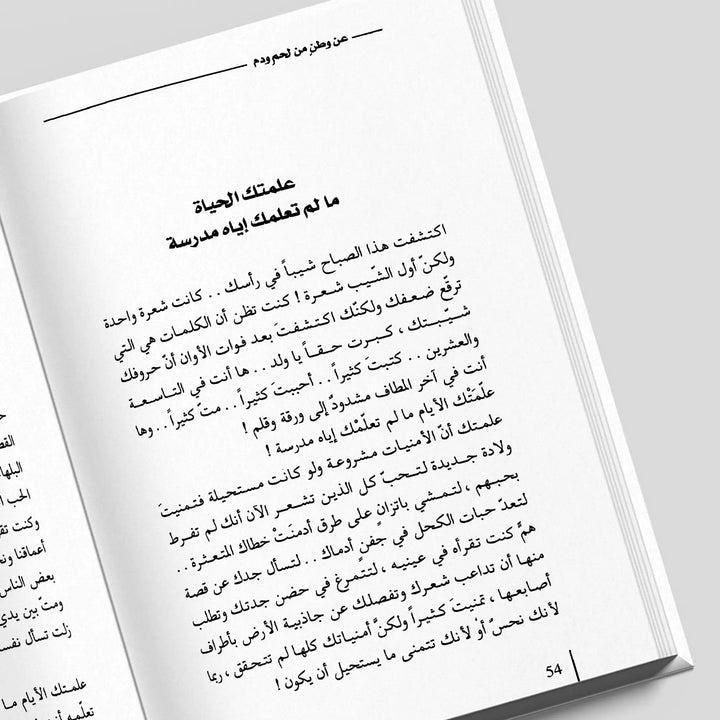 عن وطنٍ من لحم ودم
علمتك الحياة
ما لم تعلمك إياه مدرسة
اكتشفت هذا الصباح شيباً في رأسك . . كانت شعرة واحدة
ولكنّ أول الشّيب شعرة ! كنت تظن أن الكلمات هي التي
ترقّع ضعفك ولكنّك اكتشفتَ بعد فوات الأوان أنّ حروفك
شيّبتك ، كبرت حقاً يا ولد . . ها أنت في التاسعة
والعشرين . . كتبتَ كثيراً . . أحببتَ كثيراً . . متّ كثيراً . . وها
أنت في آخر المطاف مشدودٌ إلى ورقة وقلم !
علّمَتْك الأيام ما لم تعلّمْك إياه مدرسة !
علمتك أنّ الأمنيات مشروعة ولو كانت مستحيلة فتمنيتَ
ولادة جديدة لتحبّ كل الذين تشعر الآن أنك لم تفرط
بحبهم ، لتمشي باتزانٍ على طرق أدمنَتْ خطاك المتعثرة . .
لتعدّ حبات الكحل في جفنٍ أدماك . . لتسأل جدك عن قصة
همٍّ كنت تقرأه في عينيه ، لتتمرغ في حضن جدتك وتطلب
منها أن تداعب شعرك وتفصلك عن جاذبية الأرض بأطراف
أصابعها ، تمنيتَ كثيراً ولكنَّ أمنياتك كلها لم تتحقق ، ربما
لأنك نحسٌ أوْ لأنك تتمنى ما يستحيل أن يكون !
54
القص
البلها
وكنت تقر
أعماقنا ونح
بعض الناس
ومتّ بين يدي
زلت تسأل نفسـ
علمتك الأيام ما